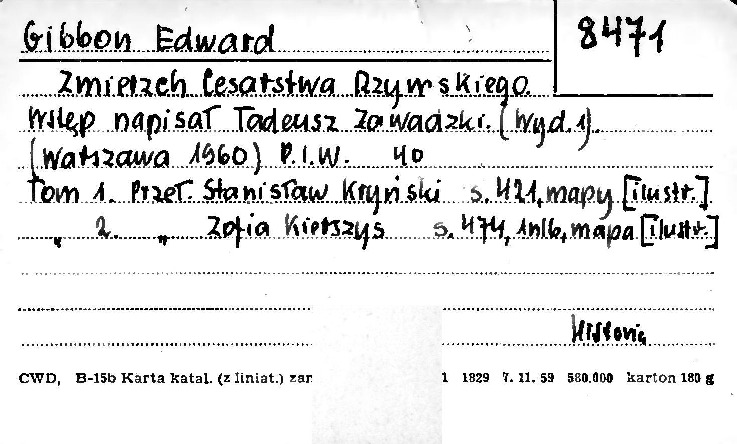 Gibbon Edward
8471
Zmierzch Cesarstwa Rzymskiego.
Wstęp napisał Tadeusz Zawadzki. (Wyd. 1).
(Warszawa 1960) P.I.W. 40
Tom 1. Przeł. Stanisław Kryński s. 421, mapy [ilustr.]
„ 2. „ Zofia Kierszys s. 474, 1nlb, mapa [ilustr.]
Historia
CWD, B-15b Karta katal. (z liniat.) zar 1 1829 7. 11. 59 580.000 karton 180 g